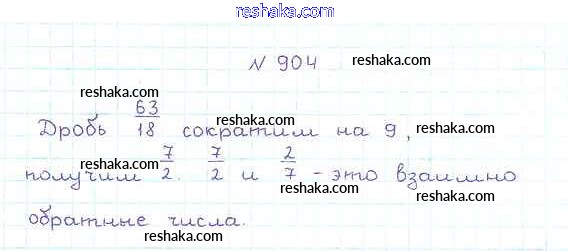 reshaka.com
№ 904 reshaka.com
reshaka.com
Дробь 63/18 сократим на 9,
reshaka.com reshaka.com
reshaka.com
получим 7/2. 7/2 и 2/7 - это взаимно
reshaka.com reshaka.com
обратные числа.
reshaka.com